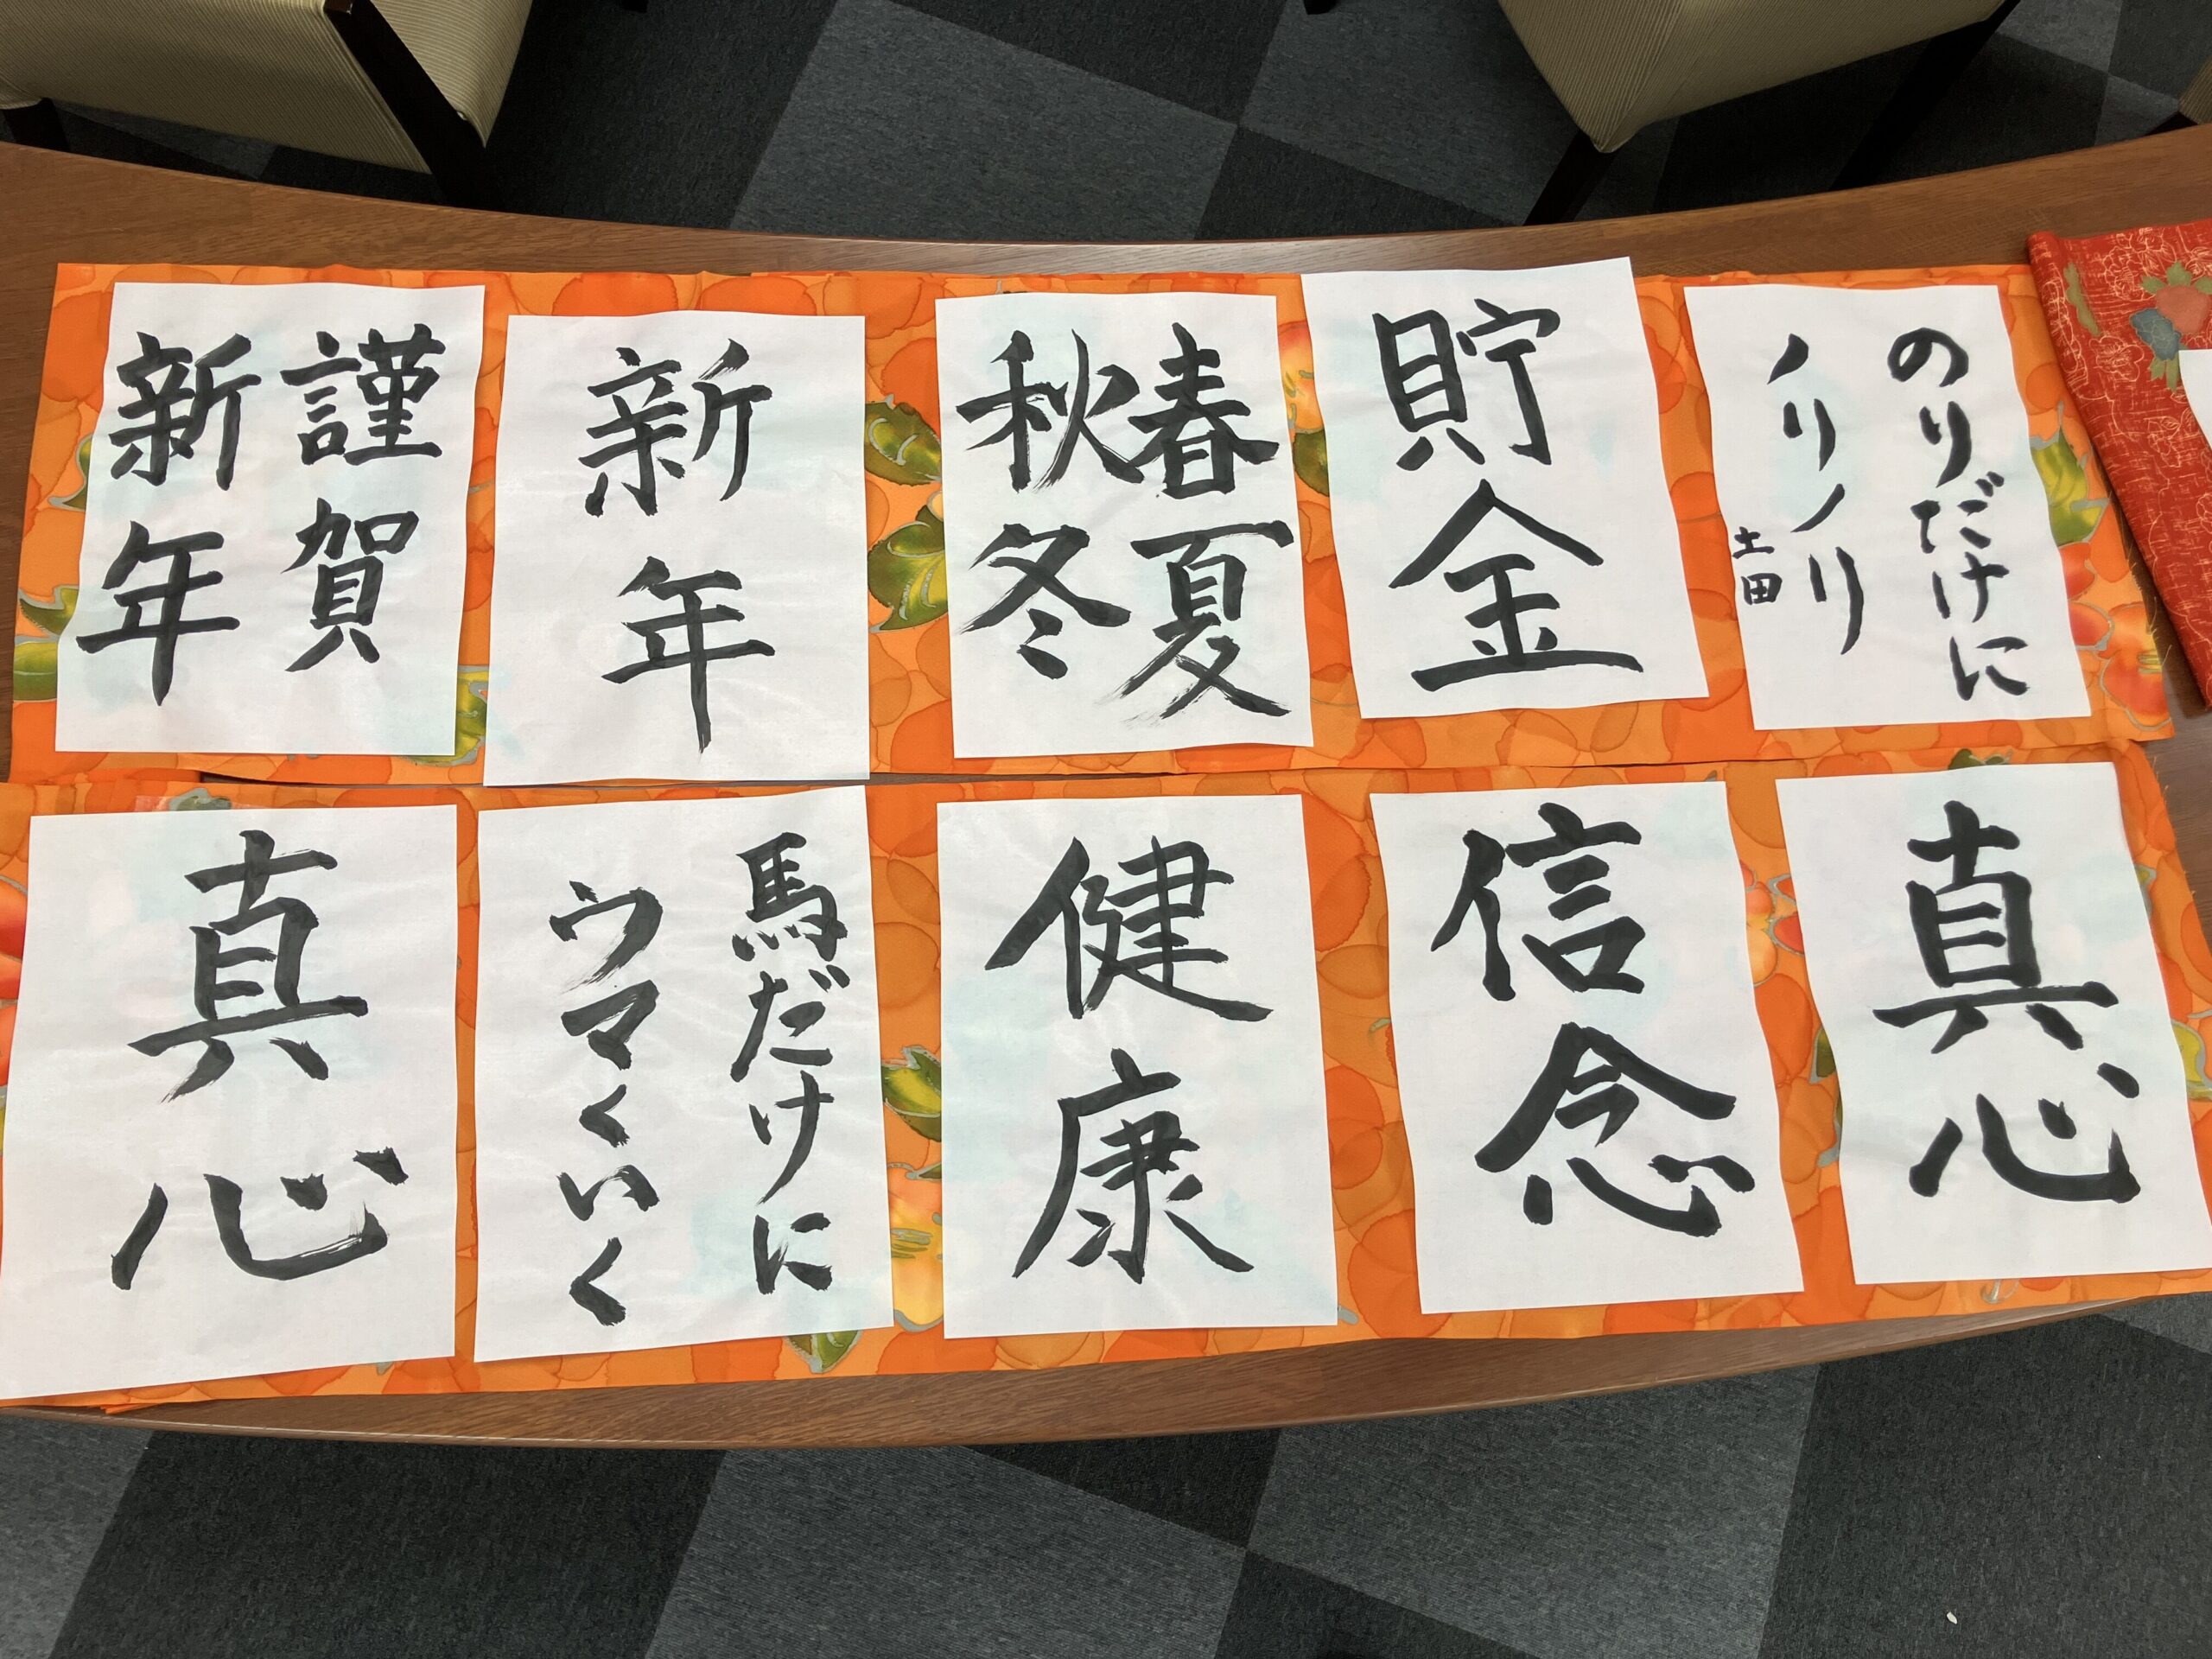 謹賀
新年
新年
春夏
秋冬
貯金
のりだけに
ノリノリ
土田
真心
馬だけに
ウマくいく
健康
信念
真心